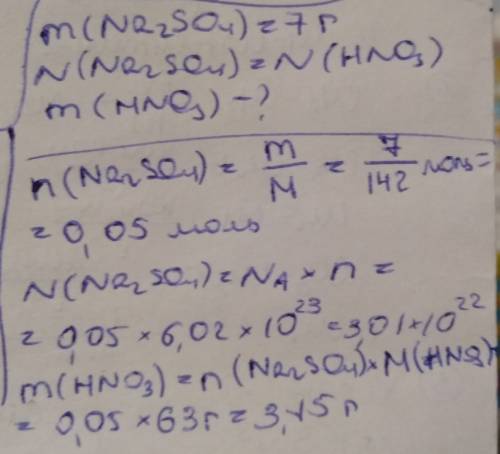 m(Na₂SO₄) = 7 г
N(Na₂SO₄) = N(HNO₃)
m(HNO₃) - ?
n(Na₂SO₄) = m/M = 7/142 моль =
= 0,05 моль
N(Na₂SO₄) = Nᴀ × n =
= 0,05 × 6,02 × 10²³ = 3,01 × 10²²
m(HNO₃) = n(Na₂SO₄) × M(HNO₃)
= 0,05 × 63 г = 3,15 г